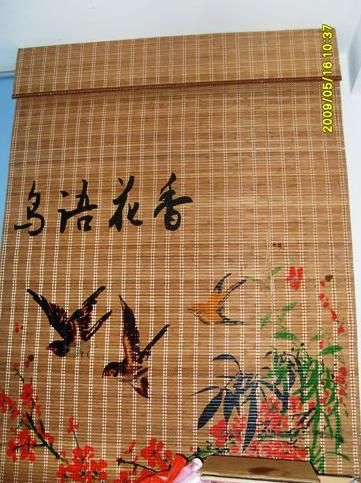 鸟语花香
2009/05/16 10:37